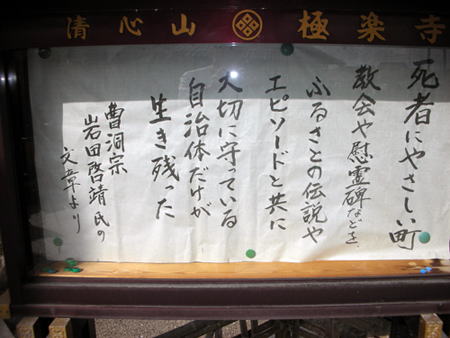 清心山 極楽寺
死者にやさしい町
教会や慰霊碑などを
ふるさとの伝説や
エピソードと共に
大切に守っている
自治体だけが
生き残った
曹洞宗
岩田啓靖氏の
文章より